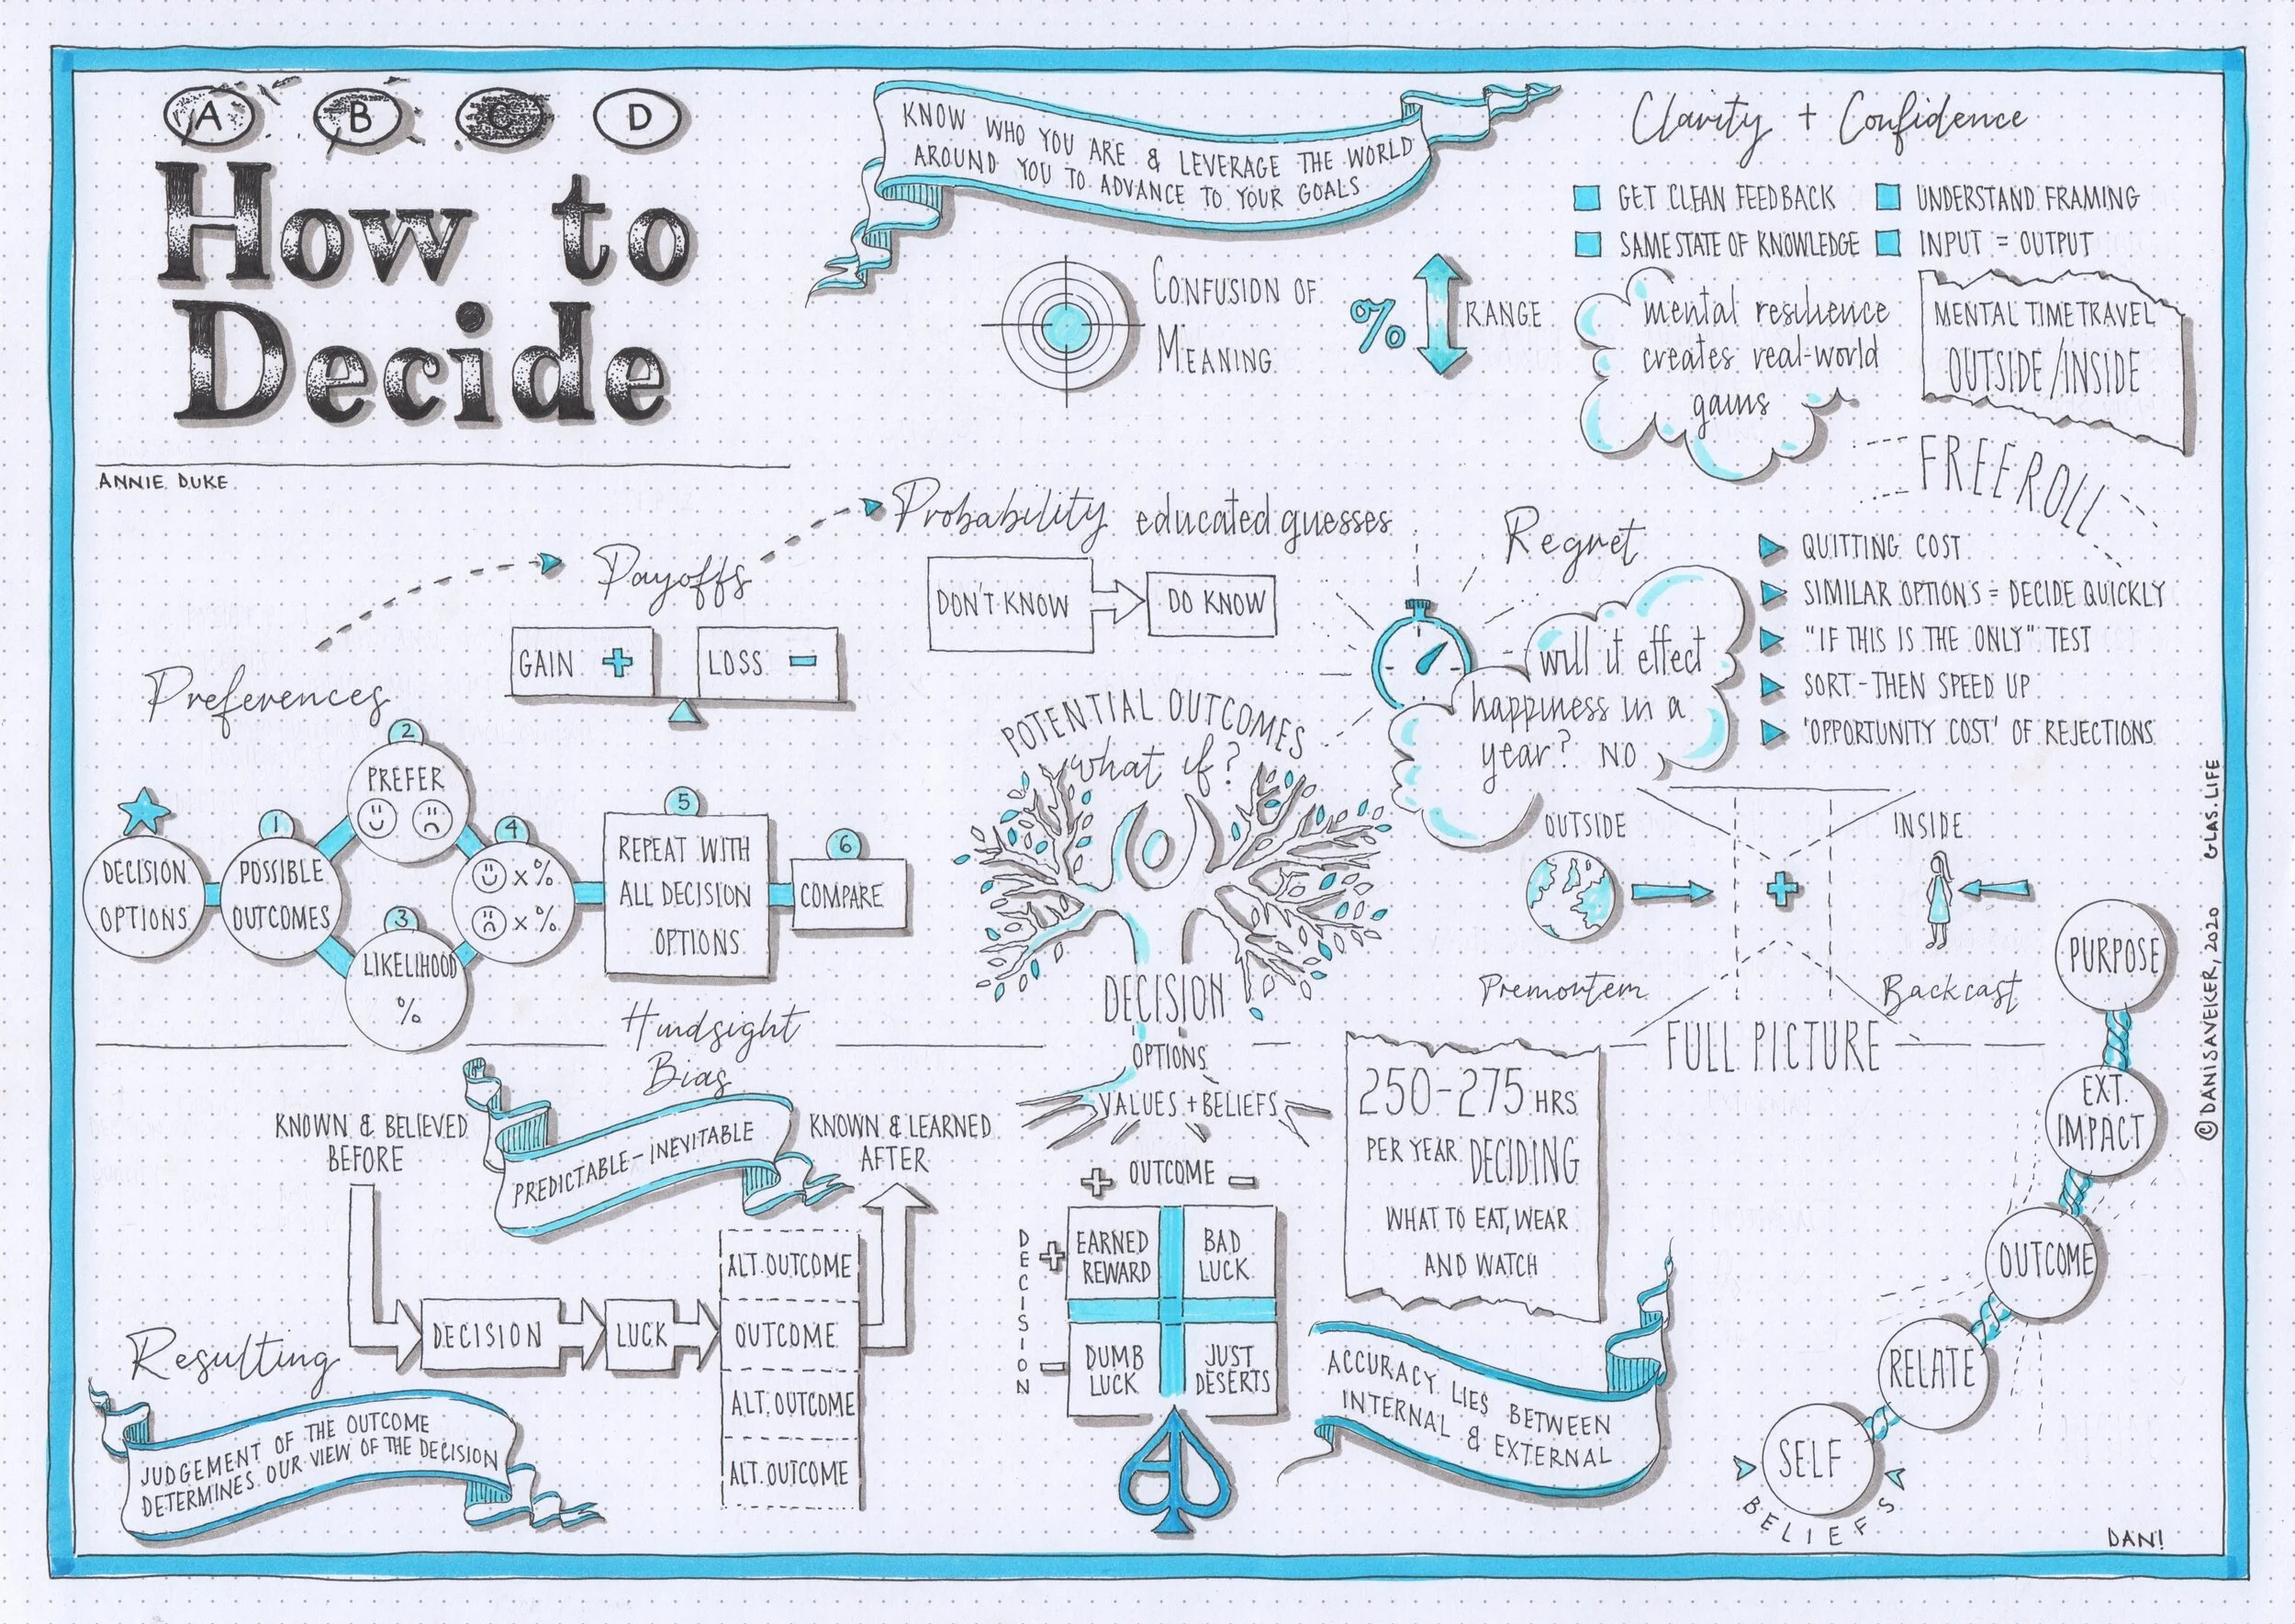 A B C D
How to
Decide
ANNIE DUKE
KNOW WHO YOU ARE & LEVERAGE THE WORLD
AROUND YOU TO ADVANCE TO YOUR GOALS
CONFUSION OF
MEANING
% RANGE
Clarity + Confidence
GET CLEAN FEEDBACK
UNDERSTAND FRAMING
SAME STATE OF KNOWLEDGE
INPUT = OUTPUT
mental resilience
creates real-world
gains
MENTAL TIME TRAVEL
OUTSIDE/INSIDE
FREEROLL
QUITTING COST
SIMILAR OPTIONS = DECIDE QUICKLY
"IF THIS IS THE ONLY" TEST
SORT - THEN SPEED UP
'OPPORTUNITY COST' OF REJECTIONS
Preferences
Payoffs
GAIN +
LOSS -
Probability educated guesses
DON'T KNOW
DO KNOW
Regret
will it effect
happiness in a
year? NO
DECISION
OPTIONS
1
POSSIBLE
OUTCOMES
2
PREFER
3
LIKELIHOOD
%
4
x%
x%
5
REPEAT WITH
ALL DECISION
OPTIONS
6
COMPARE
POTENTIAL OUTCOMES
what if?
DECISION
OPTIONS
VALUES + BELIEFS
OUTSIDE
INSIDE
+
Premortem
Backcast
FULL PICTURE
Hindsight
Bias
PREDICTABLE - INEVITABLE
KNOWN & BELIEVED
BEFORE
KNOWN & LEARNED
AFTER
DECISION
LUCK
ALT. OUTCOME
OUTCOME
ALT. OUTCOME
ALT. OUTCOME
Resulting
JUDGEMENT OF THE OUTCOME
DETERMINES OUR VIEW OF THE DECISION
+ OUTCOME -
DECISION
+
-
EARNED
REWARD
BAD
LUCK
DUMB
LUCK
JUST
DESERTS
250-275 HRS
PER YEAR DECIDING
WHAT TO EAT, WEAR
AND WATCH
ACCURACY LIES BETWEEN
INTERNAL & EXTERNAL
PURPOSE
EXT.
IMPACT
OUTCOME
RELATE
SELF
BELIEFS
©DANISAVEKER, 2020 GLAS.LIFE
DAN!